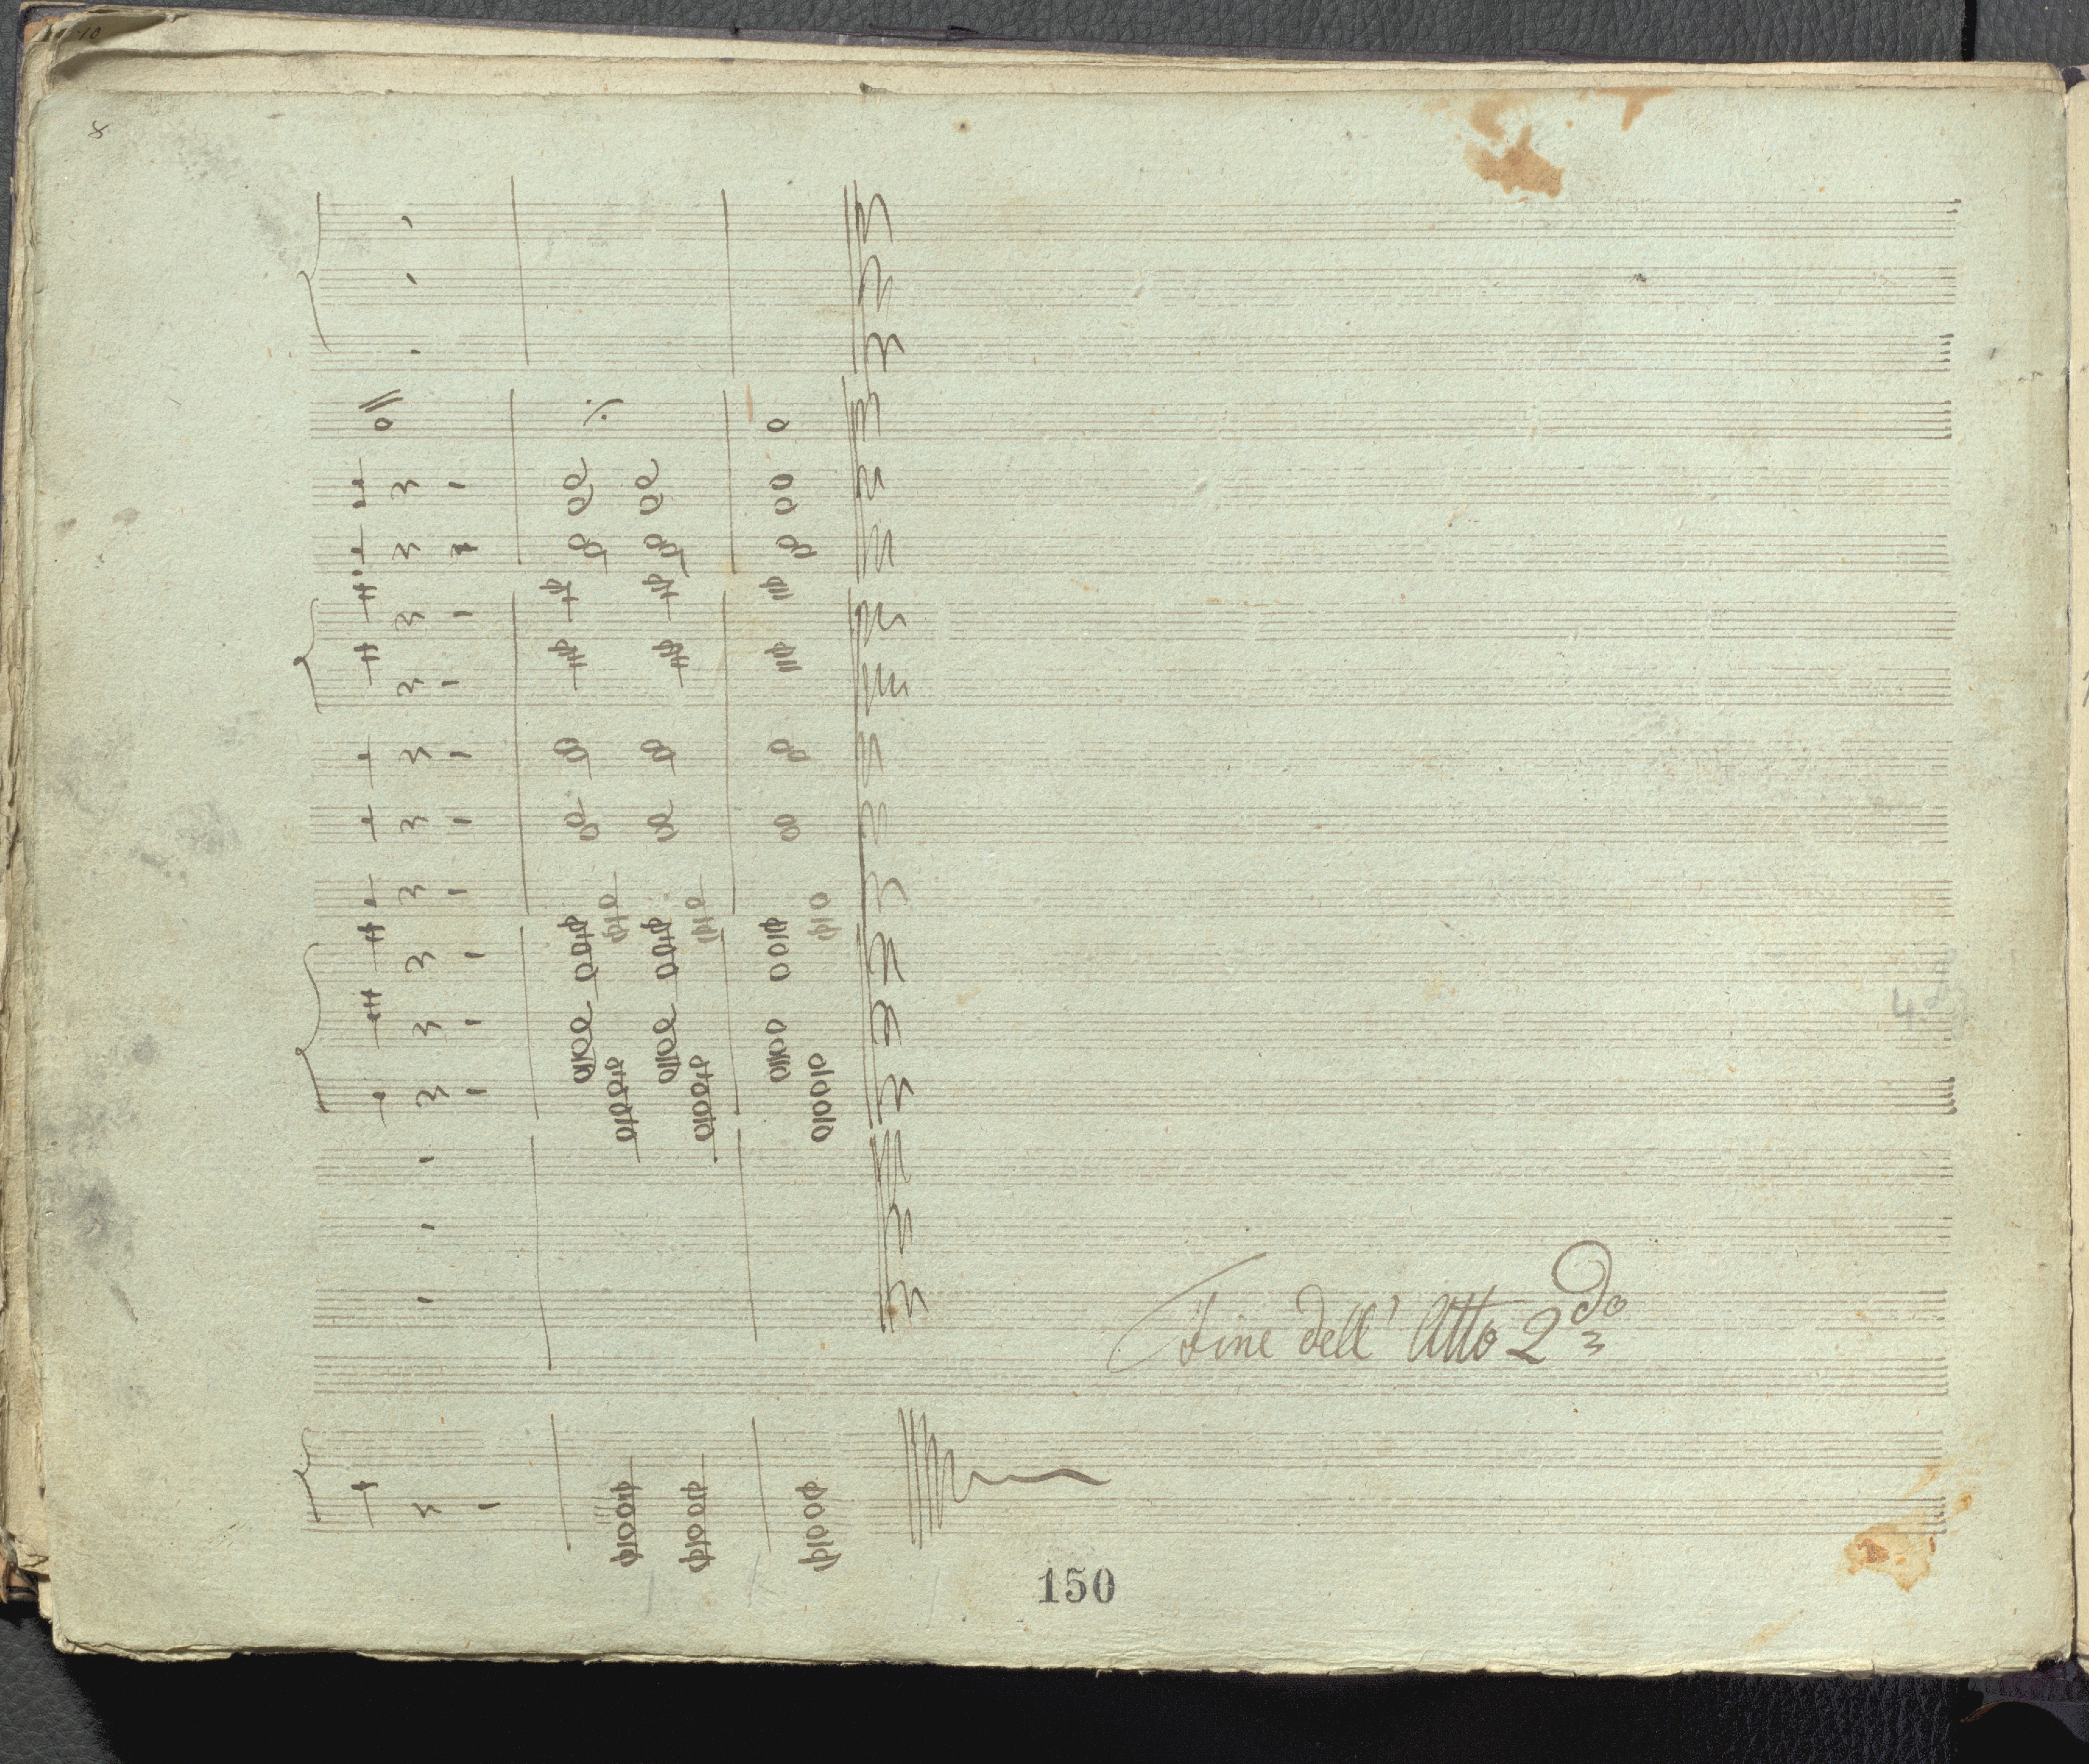 10
8
4
Fine dell' Atto 2do
150